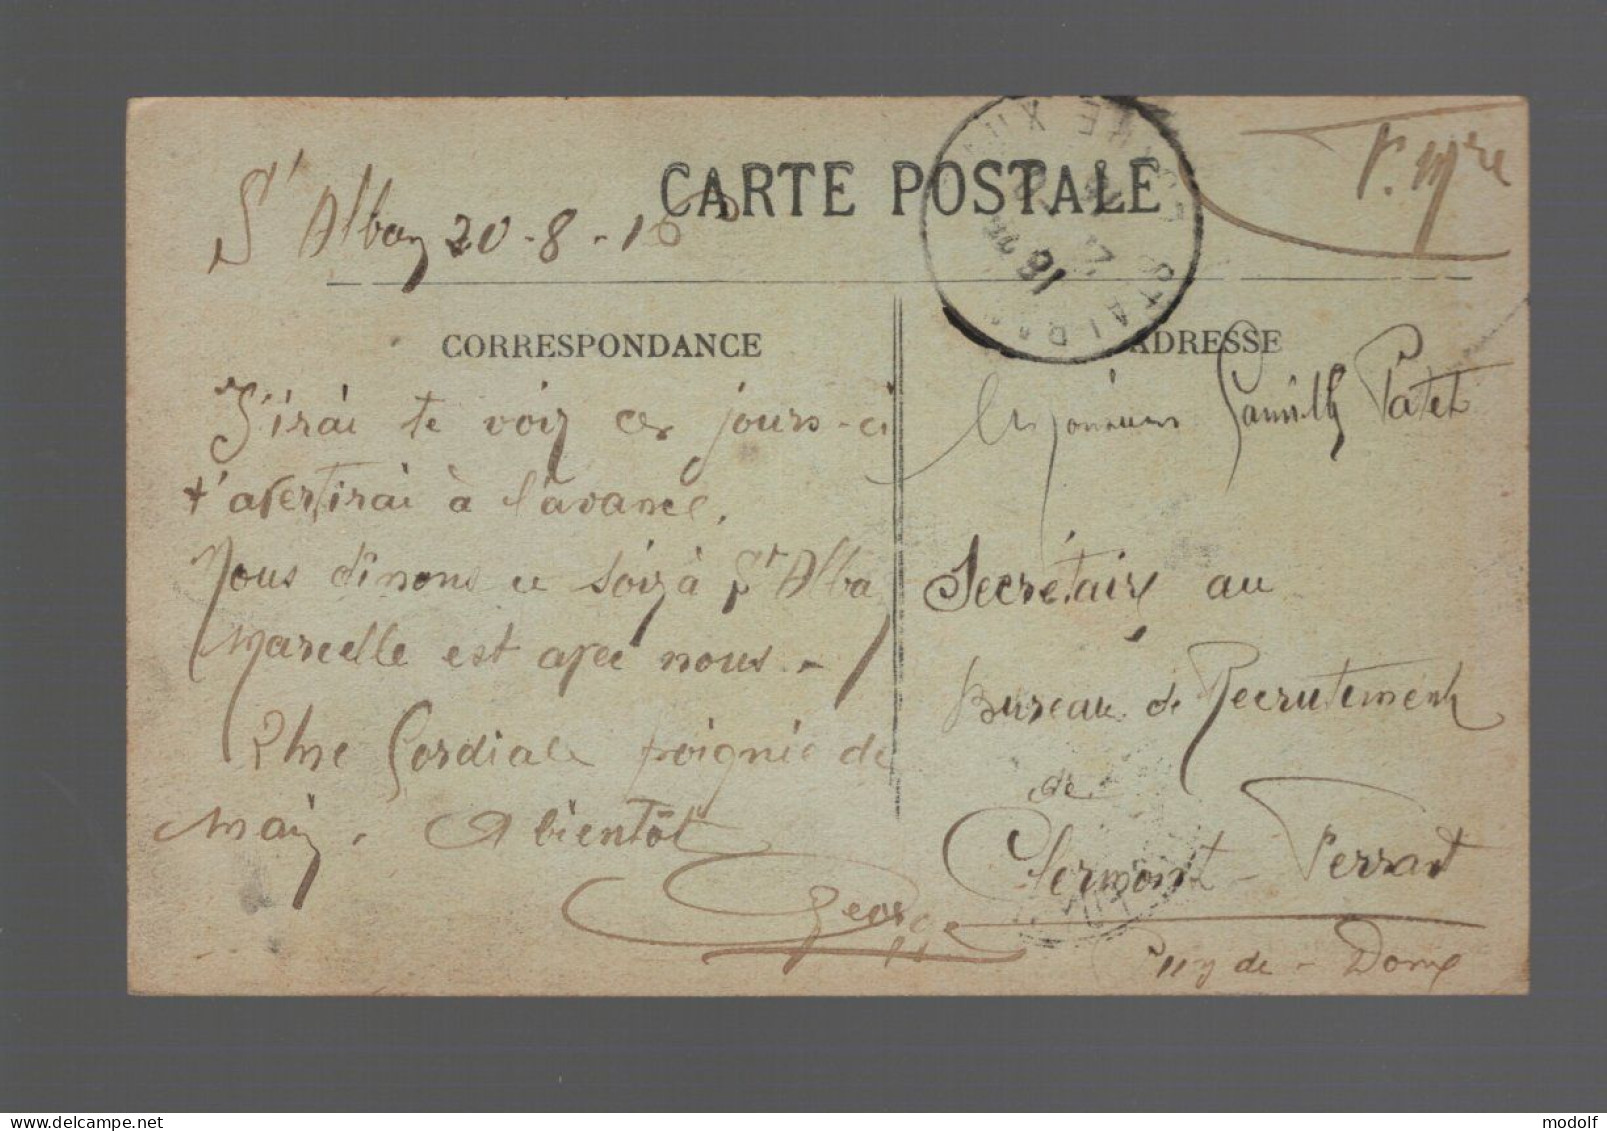 F. Mre
CARTE POSTALE
St Alban 20-8-16
CORRESPONDANCE
J'irai te voir ces jours-ci
t'avertirai à l'avance.
Nous dinons ce soir à St Alba
Marcelle est avec nous -
Cordiale poignée de
main. A bientôt
George
ADRESSE
Monsieur Patet
Secrétaire au
Bureau de Recrutement
de
Clermont-Ferrant
Puy de-Dome
modolf